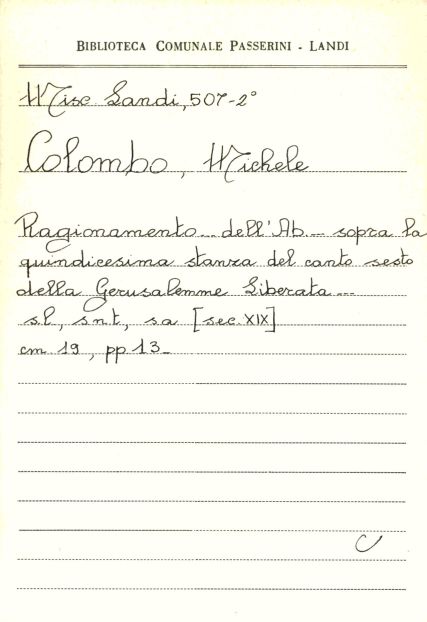 BIBLIOTECA COMUNALE PASSERINI - LANDI
Misc Landi, 507-2°
Colombo, Michele
Ragionamento... dell'Ab... sopra la
quindicesima stanza del canto sesto
della Gerusalemme Liberata...
sl, snt, sa [sec. XIX]
cm 19, pp 13_
C